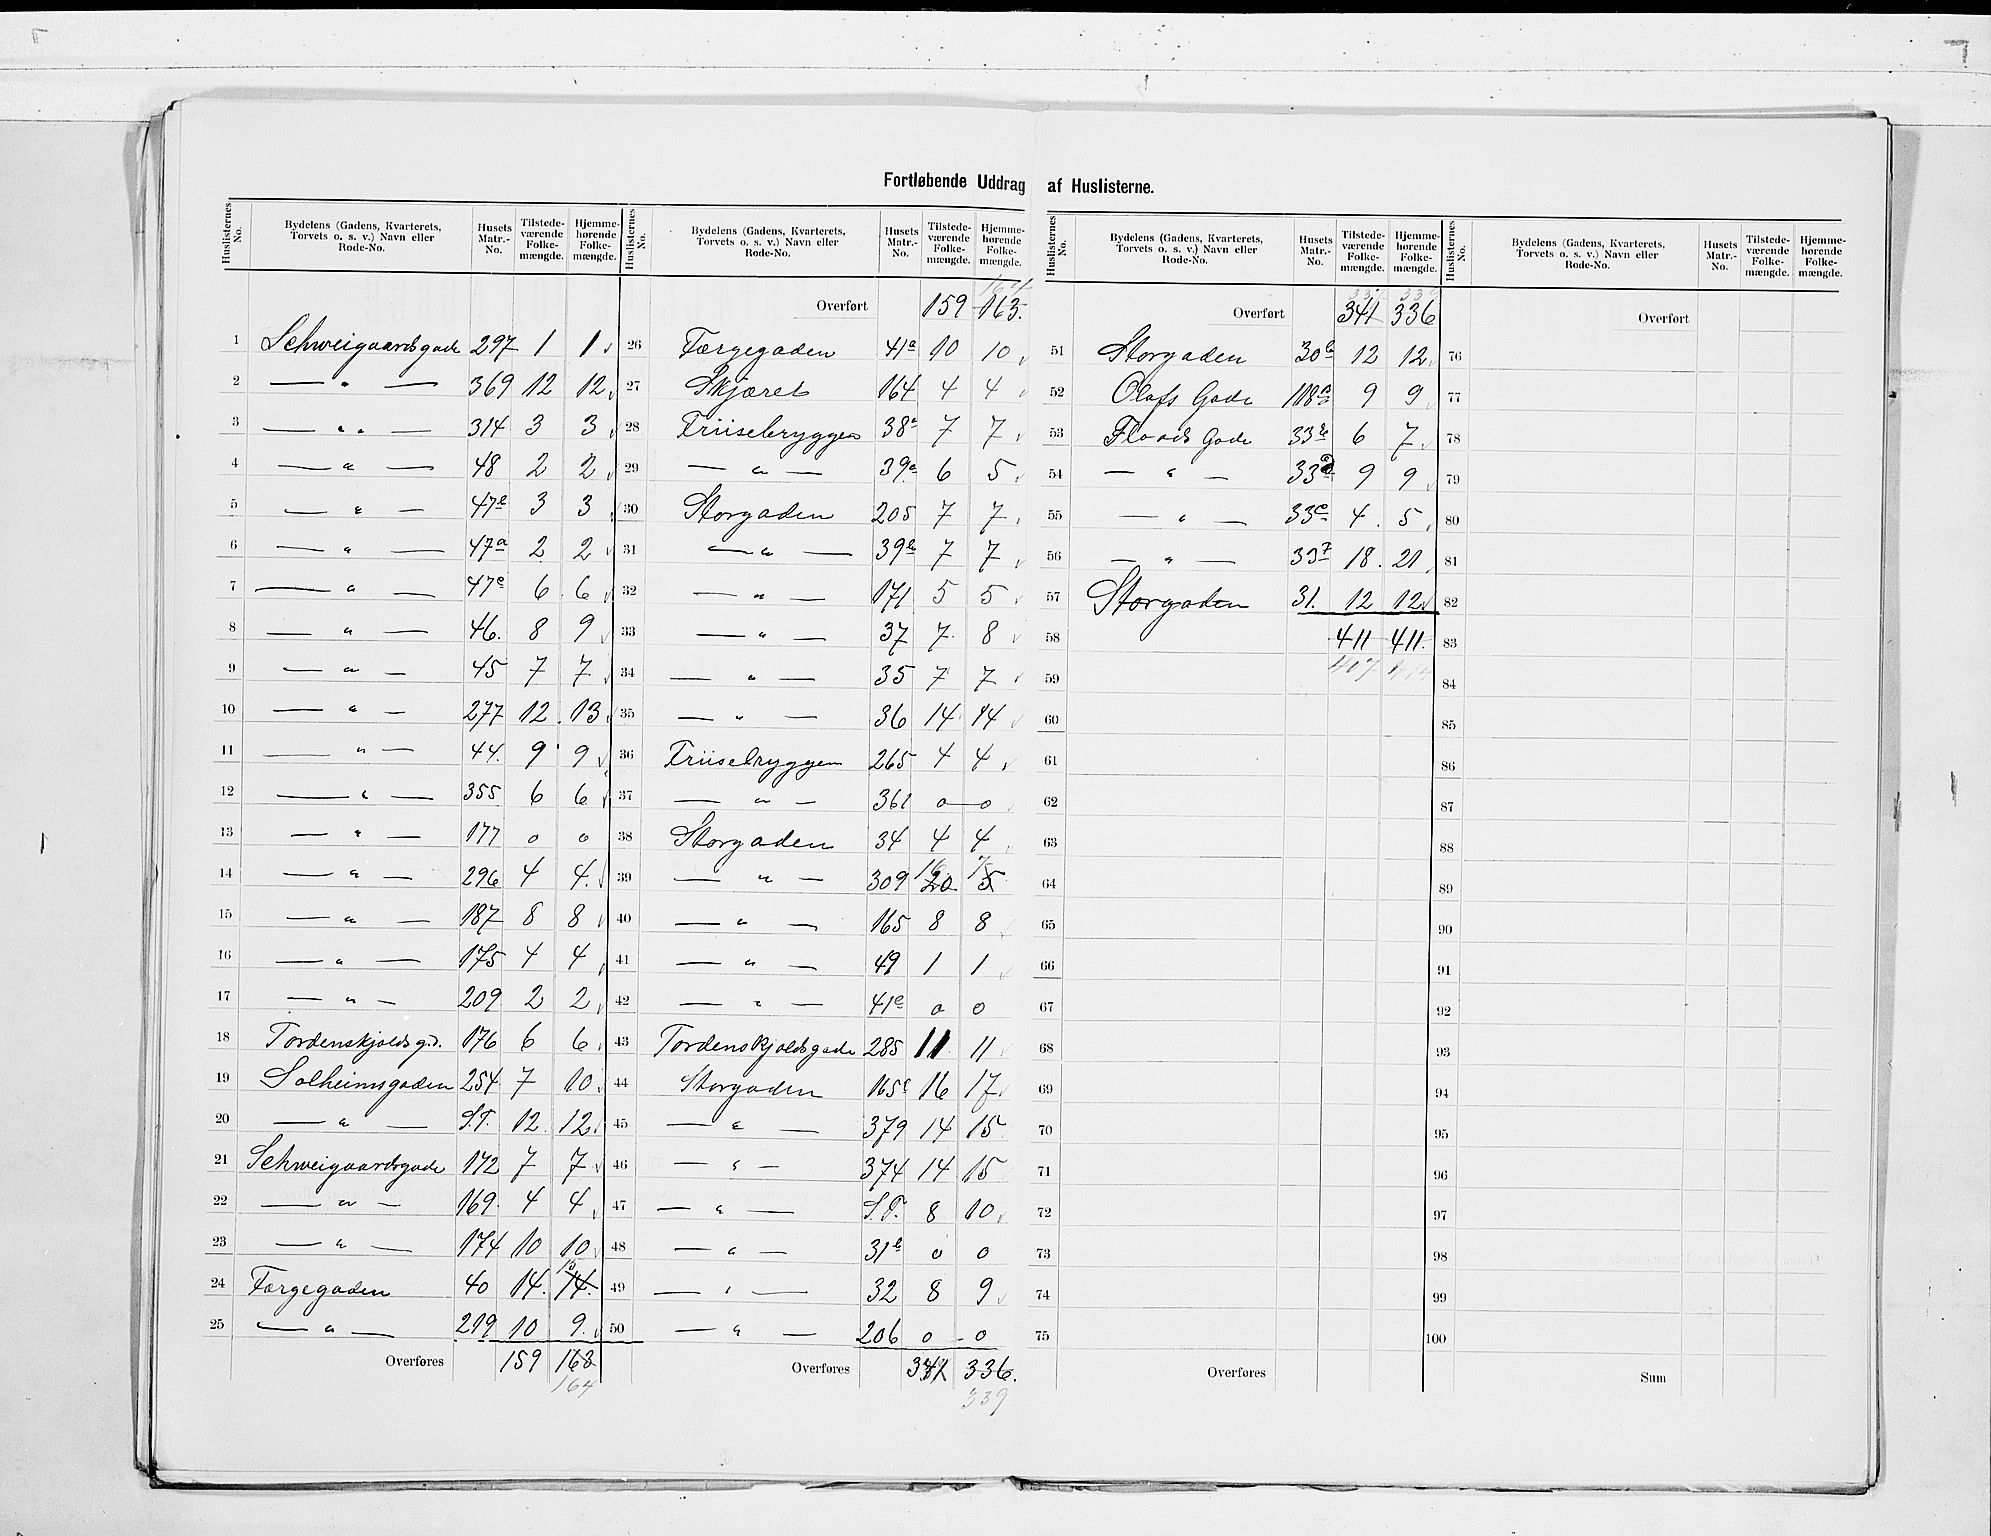 Fortløbende Uddrag af Huslisterne.
Huslisternes No. Bydelens (Gadens, Kvarterets, Torvets o. s. v.) Navn eller Rode-No. Husets Matr.-No. Tilstedeværende Folkemængde. Hjemmehørende Folkemængde.
1 Schweigaardsgade 297 1 1
2 — " — 369 12 12
3 — " — 314 3 3
4 — " — 48 2 2
5 — " — 47b 3 3
6 — " — 47a 2 2
7 — " — 47c 6 6
8 — " — 46. 8 9
9 — " — 45 7 7
10 — " — 277 12 13
11 — " — 44. 9 9
12 — " — 355 6 6
13 — " — 177 0 0
14 — " — 296 4 4.
15 — " — 187 8 8
16 — " — 175 4 4
17 — " — 209 2 2
18 Tordenskjoldsgd. 176 6 6
19 Solheimsgaden 254 7 10
20 — " — S.T. 12 12
21 Schweigaardsgade 172 7 7
22 — " — 169 4 4
23 — " — 174 10 10
24 Færgegaden 40 14. 14. 15
25 — " — 219 10 9.
Overføres 159 163
164
Huslisternes No. Bydelens (Gadens, Kvarterets, Torvets o. s. v.) Navn eller Rode-No. Husets Matr.-No. Tilstedeværende Folkemængde. Hjemmehørende Folkemængde.
164
Overført 159 163.
26 Færgegaden 41a 10 10
27 Skjæret 164 4 4
28 Friisebryggen 38a 7 7
29 — " — 39a 6 5
30 Storgaden 205 7 7
31 — " — 39b 7 7
32 — " — 171 5 5
33 — " — 37 7 8
34 — " — 35 7 7
35 — " — 36 14 14
36 Friisebryggen 265 4 4
37 — " — 361 0 0
38 Storgaden 34 4 4
39 — " — 309 20 16 5
40 — " — 165 8 8
41 — " — 49 1 1
42 — " — 41e 0 0
43 Tordenskjoldsgade 285 11 11
44 Storgaden 165c 16 17
45 — " — 379 14 15
46 — " — 374 14 15
47 — " — S.T. 8 10
48 — " — 31b 0 0
49 — " — 32 8 9
50 — " — 206 0 0
Overføres 341 336.
339
Huslisternes No. Bydelens (Gadens, Kvarterets, Torvets o. s. v.) Navn eller Rode-No. Husets Matr.-No. Tilstedeværende Folkemængde. Hjemmehørende Folkemængde.
337 339
Overført 341 336
51 Storgaden 30b 12 12
52 Olafs Gade 118a 9 9
53 Floods Gade 33b 6 7
54 — " — 33d 9 9
55 — " — 33e 4 5
56 — " — 33f 18 21
57 Storgaden 31. 12 12
58 411 411.
59 407 414
60
61
62
63
64
65
66
67
68
69
70
71
72
73
74
75
Overføres
Huslisternes No. Bydelens (Gadens, Kvarterets, Torvets o. s. v.) Navn eller Rode-No. Husets Matr.-No. Tilstedeværende Folkemængde. Hjemmehørende Folkemængde.
Overført
76
77
78
79
80
81
82
83
84
85
86
87
88
89
90
91
92
93
94
95
96
97
98
99
100
Sum